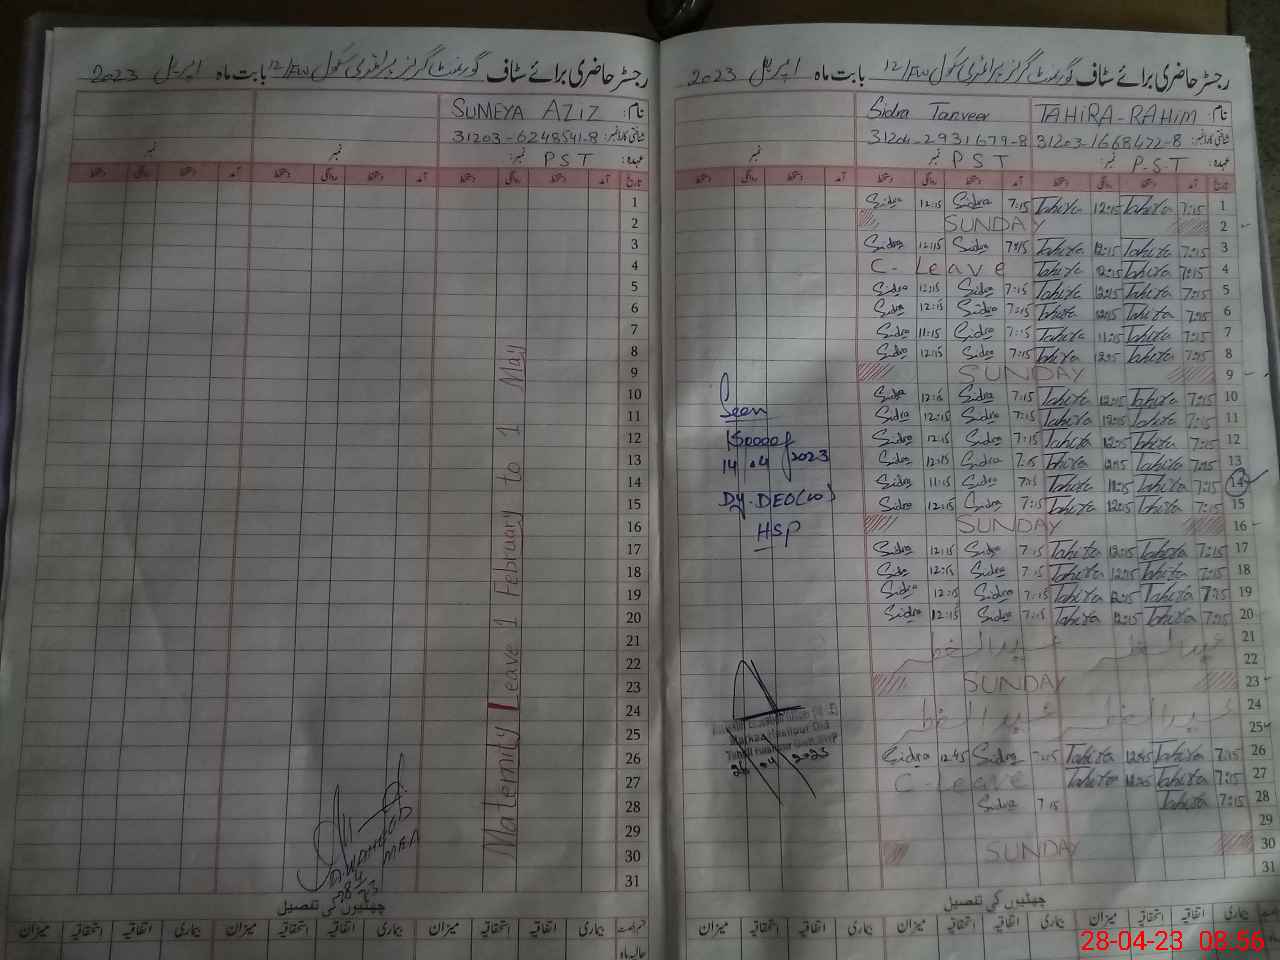 رجسٹر حاضری برائے سٹاف گورنمنٹ گرلز پرائمری سکول 12/FW بابت ماہ اپریل 2023
نام: SUMEYA AZIZ
شناختی کارڈ نمبر: 31203-6248541-8
عہدہ: PST نمبر: نمبر نمبر
تاریخ آمد دستخط روانگی دستخط آمد دستخط روانگی دستخط آمد دستخط روانگی دستخط
1
2
3
4
5
6
7
8
9
10
11
12
13
14
15
16
17
18
19
20
21
22
23
24
25
26
27
28
29
30
31
Maternity Leave 1 February to 1 May
MEA
28/4/23
چھٹیوں کی تفصیل
بیماری اتفاقیہ استحقاقیہ میزان بیماری اتفاقیہ استحقاقیہ میزان بیماری اتفاقیہ استحقاقیہ میزان
رجسٹر حاضری برائے سٹاف گورنمنٹ گرلز پرائمری سکول 12/FW بابت ماہ اپریل 2023
نام: TAHIRA-RAHIM Sidra Tanveer
شناختی کارڈ نمبر: 31203-1668472-8 31204-2931679-8
عہدہ: P.S.T نمبر: PST نمبر نمبر
تاریخ آمد دستخط روانگی دستخط آمد دستخط روانگی دستخط آمد دستخط روانگی دستخط
1 7:15 Tahira 12:15 Tahira 7:15 Sidra 12:15 Sidra
2 SUNDAY
3 7:15 Tahira 12:15 Tahira 7:15 Sidra 12:15 Sidra
4 7:15 Tahira 12:15 Tahira C-Leave
5 7:15 Tahira 12:15 Tahira 7:15 Sidra 12:15 Sidra
6 7:15 Tahira 12:15 Tahira 7:15 Sidra 12:15 Sidra
7 7:15 Tahira 11:15 Tahira 7:15 Sidra 11:15 Sidra
8 7:15 Tahira 12:15 Tahira 7:15 Sidra 12:15 Sidra
9 SUNDAY
10 7:15 Tahira 12:15 Tahira 7:15 Sidra 12:15 Sidra
11 7:15 Tahira 12:15 Tahira 7:15 Sidra 12:15 Sidra
12 7:15 Tahira 12:15 Tahira 7:15 Sidra 12:15 Sidra
13 7:15 Tahira 12:15 Tahira 7:15 Sidra 12:15 Sidra
14 7:15 Tahira 11:15 Tahira 7:15 Sidra 11:15 Sidra
15 7:15 Tahira 12:15 Tahira 7:15 Sidra 12:15 Sidra
16 SUNDAY
17 7:15 Tahira 12:15 Tahira 7:15 Sidra 12:15 Sidra
18 7:15 Tahira 12:15 Tahira 7:15 Sidra 12:15 Sidra
19 7:15 Tahira 12:15 Tahira 7:15 Sidra 12:15 Sidra
20 7:15 Tahira 12:15 Tahira 7:15 Sidra 12:15 Sidra
21 عید الفطر عید الفطر
22
23 SUNDAY
24 عید الفطر عید الفطر
25
26 7:15 Tahira 12:45 Tahira 7:15 Sidra 12:45 Sidra
27 7:15 Tahira 12:45 Tahira C-Leave
28 7:15 Tahira 7:15 Sidra
29
30 SUNDAY
31
Seen
14.4.2023
Dy.DEO(W)
HSP
26 04 2023
چھٹیوں کی تفصیل
بیماری اتفاقیہ استحقاقیہ میزان بیماری اتفاقیہ استحقاقیہ میزان بیماری اتفاقیہ استحقاقیہ میزان
28-04-23 08:56